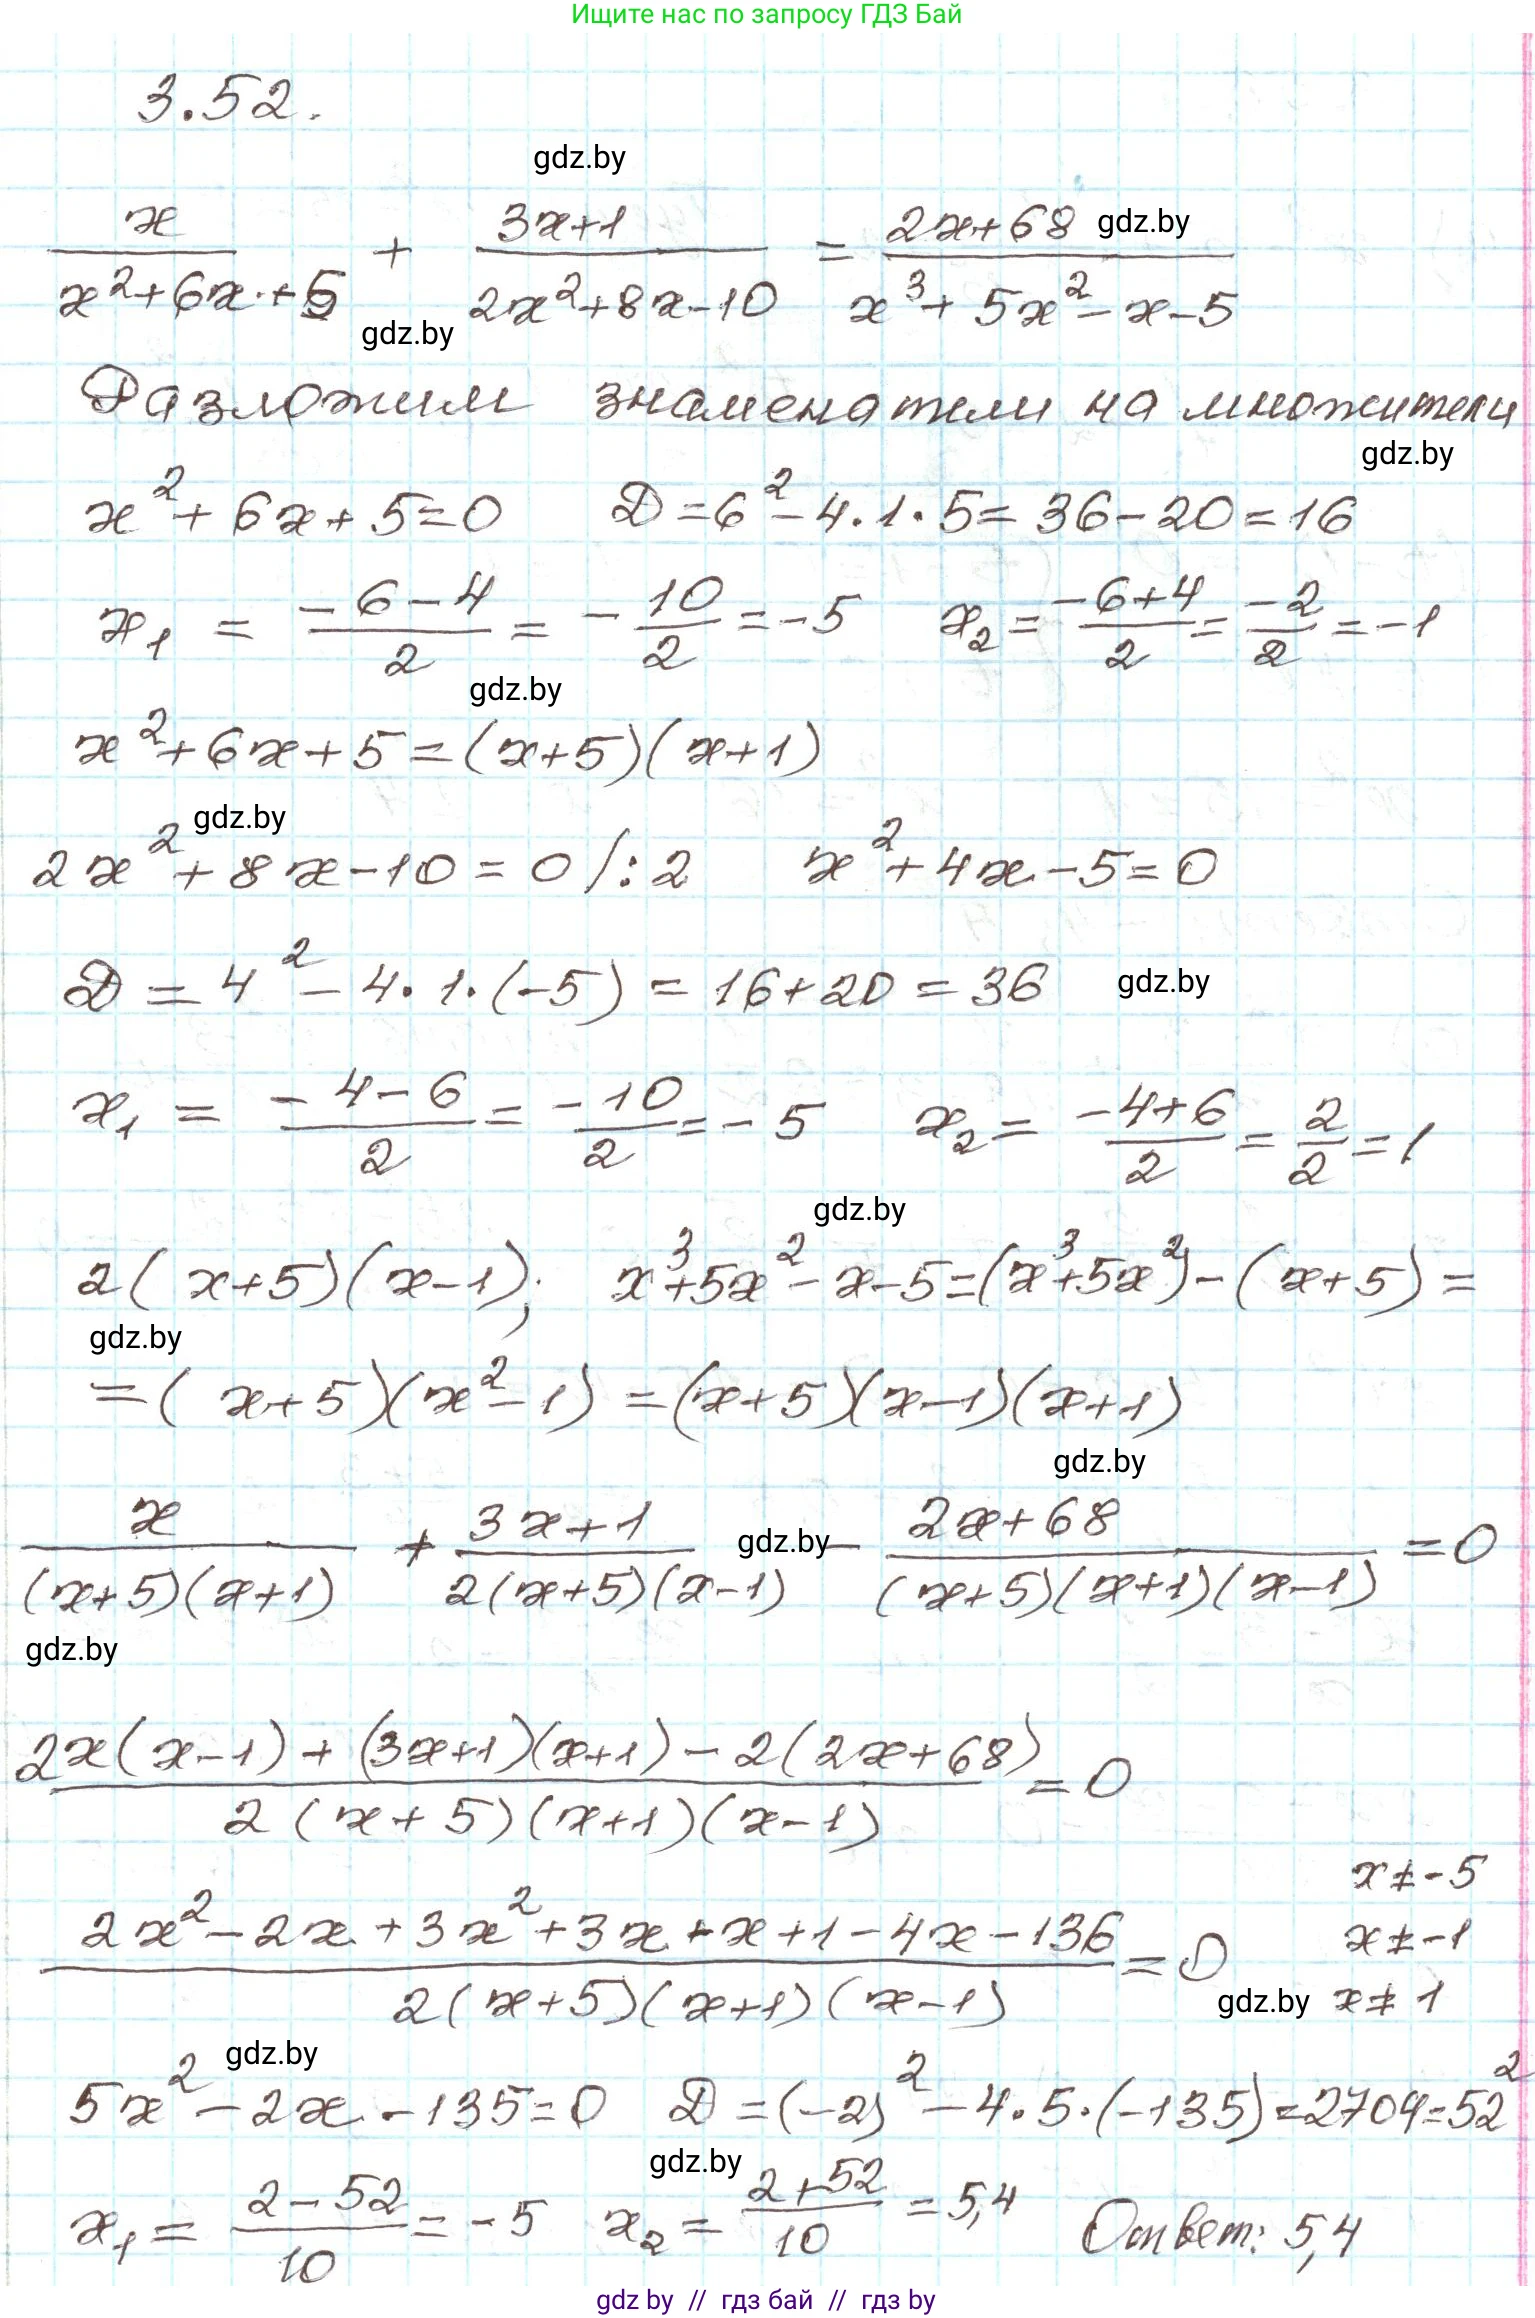 Ищите нас по запросу ГДЗ Бай
3.52.
gdz.by
x/(x²+6x+5) + (3x+1)/(2x²+8x-10) = (2x+68)/(x³+5x²-x-5) gdz.by
gdz.by
Разложим знаменатели на множители
gdz.by
x²+6x+5=0 D=6²-4·1·5=36-20=16
x₁ = (-6-4)/2 = -10/2 = -5 x₂ = (-6+4)/2 = -2/2 = -1
gdz.by
x²+6x+5=(x+5)(x+1)
gdz.by
2x²+8x-10=0 /:2 x²+4x-5=0
D=4²-4·1·(-5)=16+20=36 gdz.by
x₁ = (-4-6)/2 = -10/2 = -5 x₂ = (-4+6)/2 = 2/2 = 1
gdz.by
2(x+5)(x-1); x³+5x²-x-5=(x³+5x²)-(x+5)=
gdz.by
=(x+5)(x²-1)=(x+5)(x-1)(x+1)
gdz.by
x/((x+5)(x+1)) + (3x+1)/(2(x+5)(x-1)) gdz.by - (2x+68)/((x+5)(x+1)(x-1)) =0
gdz.by
(2x(x-1)+(3x+1)(x+1)-2(2x+68))/(2(x+5)(x+1)(x-1)) =0
(2x²-2x+3x²+3x+x+1-4x-136)/(2(x+5)(x+1)(x-1)) =0
x≠-5
x≠-1
gdz.by x≠1
gdz.by
5x²-2x-135=0 D=(-2)²-4·5·(-135)=2704=52²
gdz.by
x₁ = (2-52)/10 = -5 x₂ = (2+52)/10 = 5,4 Ответ: 5,4
gdz by // гдз бай // гдз by